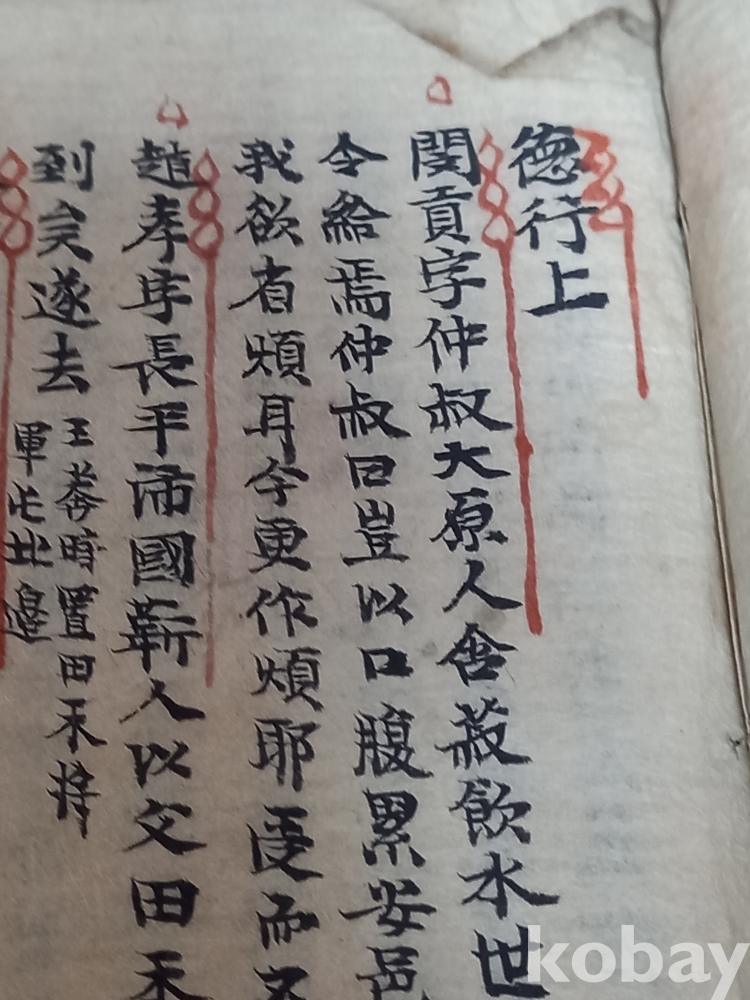 德行上
閔貢字仲叔大原人含菽飲水世
令給焉仲叔曰豈以口腹累安邑
我欲省煩耳今更作煩耶受而不
趙孝字長平沛國蘄人以父田禾
到矣遂去
王莽時置田禾將
軍屯北邊
kobay